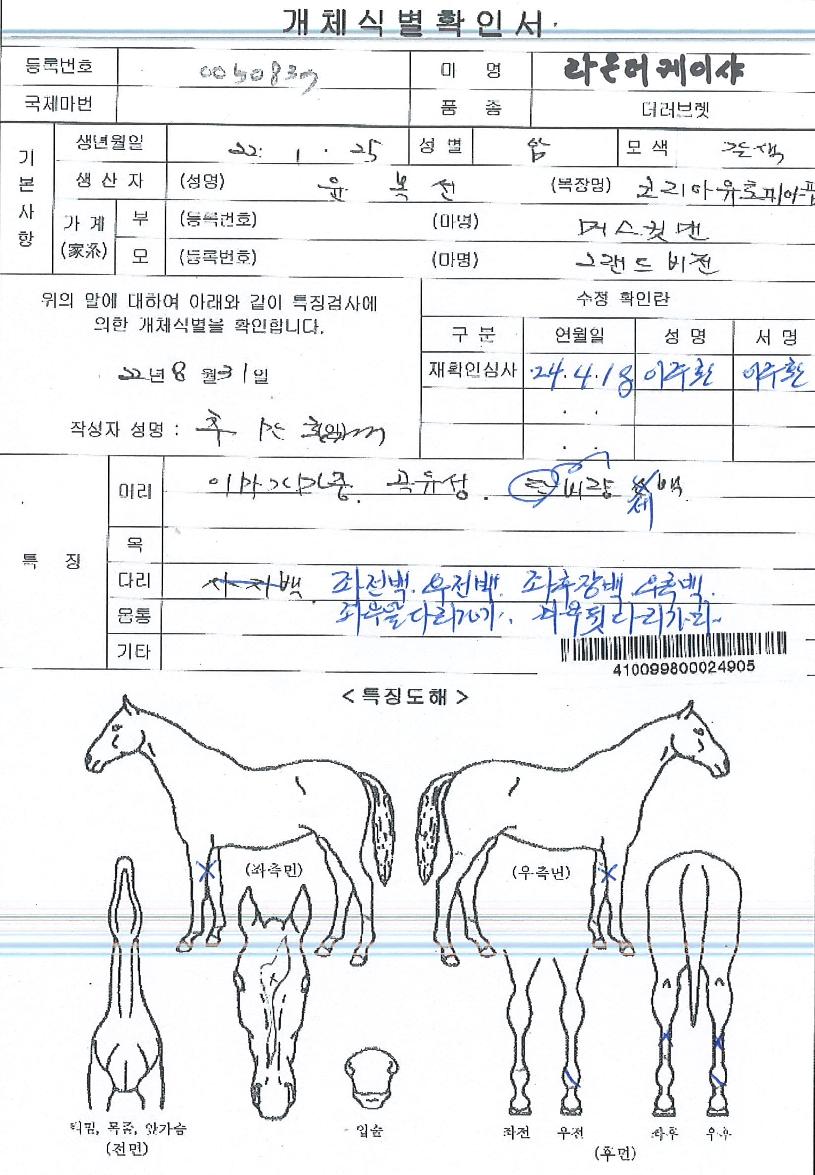 개체식별확인서
등록번호 0050837 마 명 라온더케이샤
국제마번 품 종 더러브렛
기본사항
생년월일 22. 1. 25 성별 암 모색 갈색
생 산 자 (성명) 윤복선 (목장명) 코리아유토피아팜
가계 (家系) 부 (등록번호) (마명) 머스킷맨
모 (등록번호) (마명) 그랜드비전
위의 말에 대하여 아래와 같이 특징검사에
의한 개체식별을 확인합니다.
22년 8월 31일
작성자 성명 : (인)
수정 확인란
구 분 연월일 성 명 서 명
재확인심사 24. 4. 18 이주환 이주환
특 징
머리 곡유성. 비량 백
목
다리 사지백 좌전백. 우전백. 좌후장백.
몸통
기타
410099800024905
< 특징도해 >
(좌측면) (우측면)
턱밑, 목줄, 앞가슴
(전면)
입술
좌전 우전 좌후 우후
(후면)